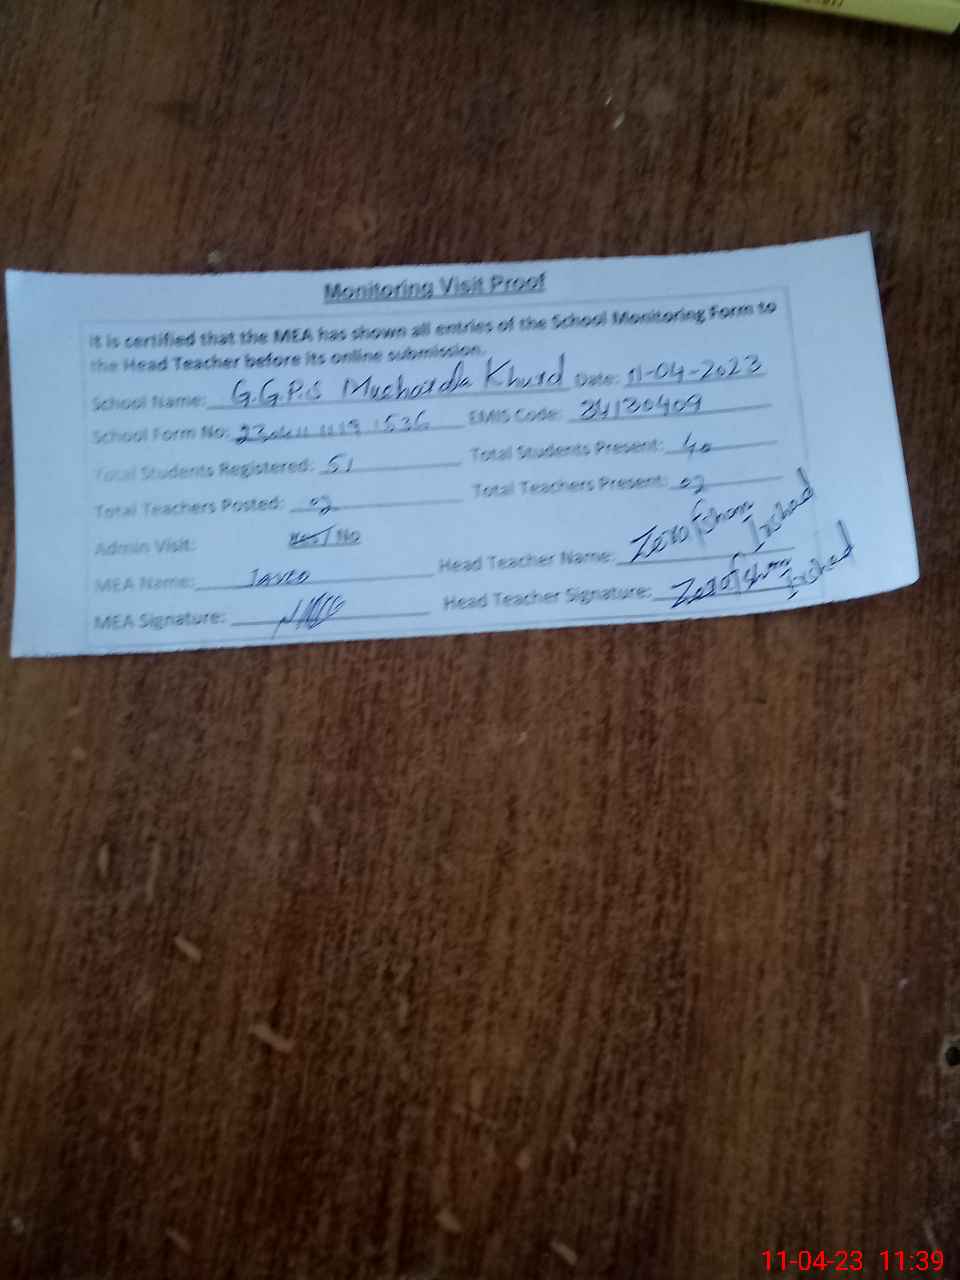 Monitoring Visit Proof
It is certified that the MEA has shown all entries of the School Monitoring Form to
the Head Teacher before its online submission.
School Name: G.G.P.S Khurd Date: 11-04-2023
School Form No: EMIS Code: 34130409
Total Students Registered: 51 Total Students Present: 40
Total Teachers Posted: 02 Total Teachers Present: 02
Admin Visit: Yes / No
MEA Name: Javed Head Teacher Name: Irshad
MEA Signature: Head Teacher Signature: Irshad
11-04-23 11:39